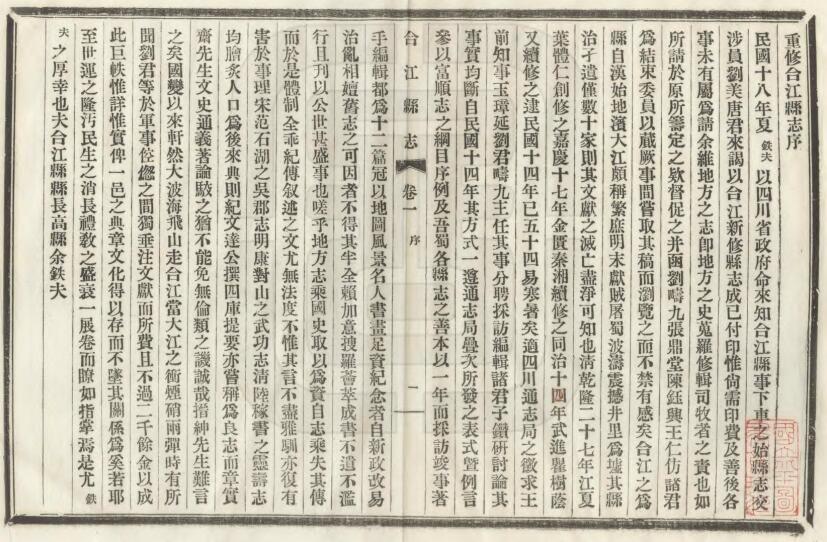 重修合江縣志序
民國十八年夏鉄夫以四川省政府命來知合江縣事下車之始縣志交
涉員劉美唐君來謁以合江新修縣志成已付印惟尙需印費及善後各
事未有屬爲請余維地方之志卽地方之史蒐羅修輯司牧者之責也如
所請於原所籌定之欵督促之并函劉疇九張鼎堂陳鈺興王仁仿諸君
爲結束委員以蕆厥事間嘗取其稿而瀏覽之而不禁有感矣合江之爲
縣自漢始地濱大江頗稱繁庶明末獻賊屠蜀波濤震撼井里爲墟其縣
治孑遺僅數十家則其文獻之滅亡盡淨可知也淸乾隆二十七年江夏
葉體仁創修之嘉慶十七年金匱秦湘續修之同治十四年武進瞿樹蔭
又續修之建民國十四年已五十四易寒暑矣適四川通志局之徵求王
前知事玉璋延劉君疇九主任其事分聘採訪編輯諸君子鑽硏討論其
事實均斷自民國十四年其方式一遵通志局疊次所發之表式曁例言
參以富順志之綱目序例及吾蜀各縣志之善本以一年而採訪竣事著
合江縣志
卷一 序
一
手編輯都爲十二篇冠以地圖風景名人書畫足資紀念者自新政改易
治亂相嬗舊志之可因者不得其半全賴加意搜羅薈萃成書不遺不濫
行且刊以公世甚盛事也嗟乎地方志乘國史取以爲資自志乘失其傳
而於是體制全乖紀傳叙述之文尤無法度不惟其言不盡雅馴亦復有
害於事理宋范石湖之吳郡志明康對山之武功志淸陸稼書之靈壽志
均膾炙人口爲後來典則紀文達公撰四庫提要亦嘗稱爲良志而章實
齋先生文史通義著論駮之猶不能免無倫類之譏誠哉搢紳先生難言
之矣國變以來軒然大波海飛山走合江當大江之衝煙硝雨彈時有所
聞劉君等於軍事倥傯之間獨垂注文獻而所費且不過二千餘金以成
此巨帙惟詳惟實俾一邑之典章文化得以存而不墜其關係爲奚若耶
至世運之隆汚民生之消長禮敎之盛衰一展卷而瞭如指掌焉是尤鉄
夫之厚幸也夫合江縣縣長高縣余鉄夫